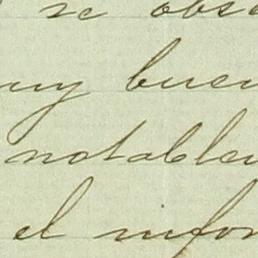 se obse
uy buen
notablem
el infor